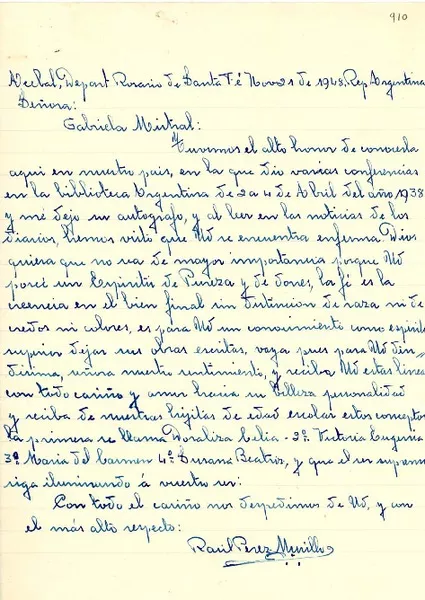 910
Alcibal, Depart Rosario de Santa Fé Nov 21 de 1948. Rep Argentina
Señora:
Gabriela Mistral:
Tuvimos el alto honor de conocerla
aqui en nuestro pais, en la que dio varias conferencias
en la biblioteca Argentina de 2 a 4 de Abril del año 1938
y me dejo su autografo, y al leer en las noticias de los
diarios, hemos visto que Ud se encuentra enferma Dios
quiera que no sea de mayor importancia porque Ud
posee un Espiritu de Pureza y de dones, la fé es la
creencia en el bien final sin distincion de raza ni de
credos ni colores, es para Ud un conocimiento como espiritu
superior dejar sus obras escritas, vaya pues para Ud
señora nuestro sentimiento, y reciba Ud estas lineas
con todo cariño y amor hacia su belleza personalidad
y reciba de nuestras hijitas de edad escolar estos conceptos
la primera se llama Doraliza Celia - 2º Victoria Eugenia
3º Maria del Carmen 4º Susana Beatriz, y que el ser supremo
siga iluminando á vuestro ser:
Con todo el cariño nos despedimos de Ud, y con
el más alto respecto:
Raúl Perez Murillo